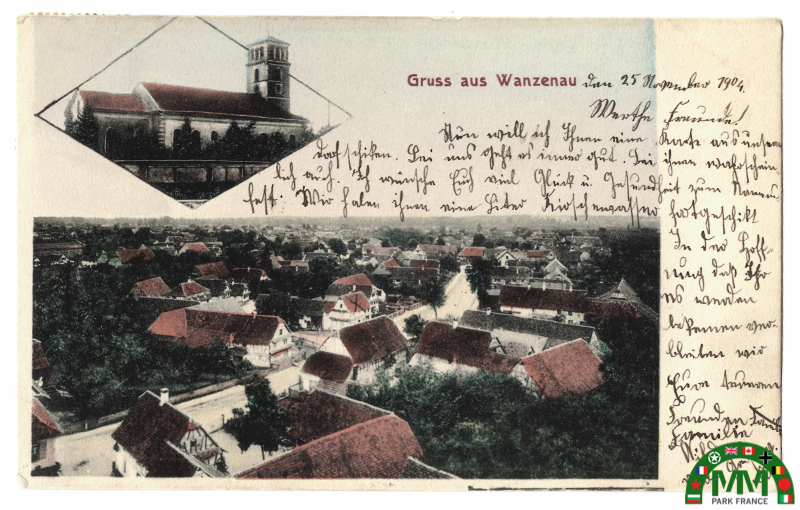 Gruss aus Wanzenau den 25 November 1904.
Werthe Freunde!
Nun will ich Ihnen eine Karte aus unserm
Dorf schiken. Bei uns geht es immer gut. Bei ihnen wahrschein
lich auch. Ich wünsche Euch viel Glück u. Gesundheit zum Namens
fest. Wir haben ihnen eine Liter Kirschenwasser
fortgeschikt
In der Hoff-
nung daß Ihr
es werden
bekemen ver-
bleiben wir
Eure
Freunden
Familie
MM
PARK FRANCE